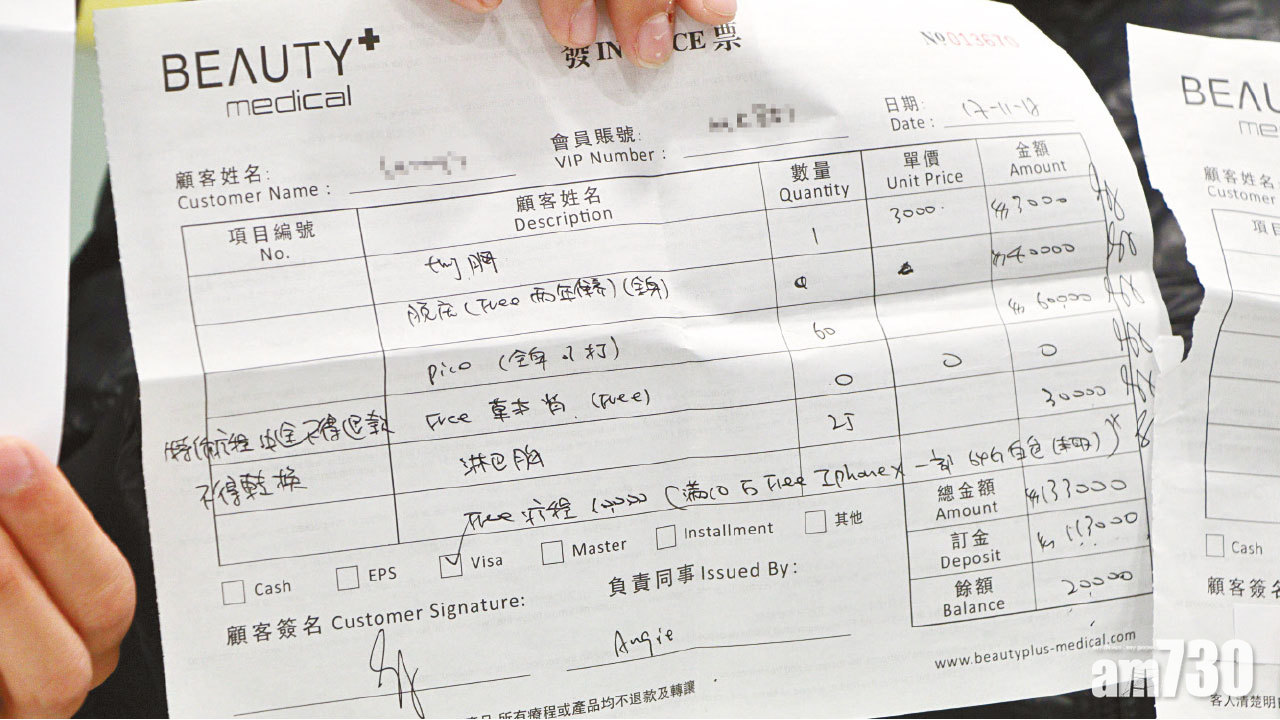 BEAUTY+
medical
發 IN CE 票
№ 013670
日期:
Date : 17-11-18
會員賬號:
VIP Number :
顧客姓名:
Customer Name :
項目編號
No.
顧客姓名
Description
數量
Quantity
單價
Unit Price
金額
Amount
胸 1 3000 3000
(Free 兩年 ) (全身) 40000
pico (全身 打) 60 60000
Free 草本 (Free) 0 0 0
療程 中途不得退款
不得轉換
淋巴胸 25 30000
Free 療程 10000 (滿10万Free Iphone X 一部 64G 白色 )
總金額
Amount 133000
訂金
Deposit 113000
餘額
Balance 20000
Cash
EPS
Visa
Master
Installment
其他
顧客簽名 Customer Signature:
負責同事 Issued By:
Angie
www.beautyplus-medical.com
所有療程或產品均不退款及轉讓
BEAU
me
顧客姓名
Customer
項目
Cash
顧客簽名
客人清楚明白
am730